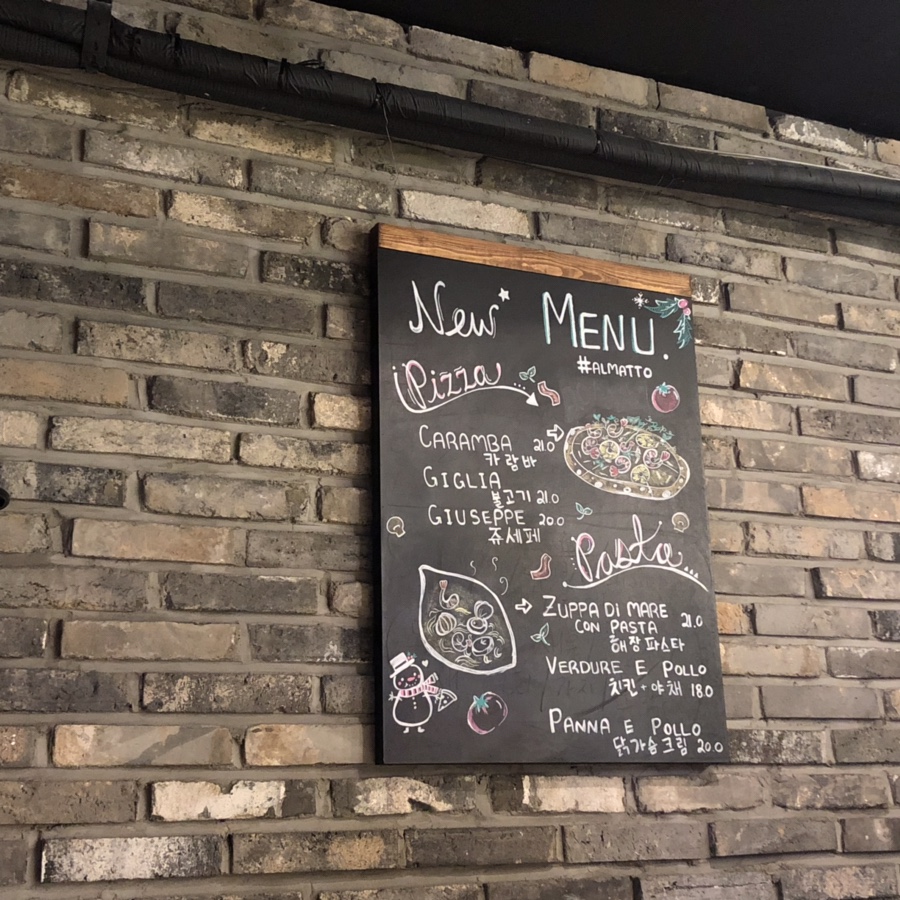 New MENU.
#ALMATTO
Pizza
CARAMBA 21.0
카랑바
GIGLIA
불고기 21.0
GIUSEPPE 20.0
쥬세페
Pasta...
ZUPPA DI MARE
CON PASTA 21.0
해장파스타
VERDURE E POLLO
치킨+야채 18.0
PANNA E POLLO
닭가슴크림 20.0